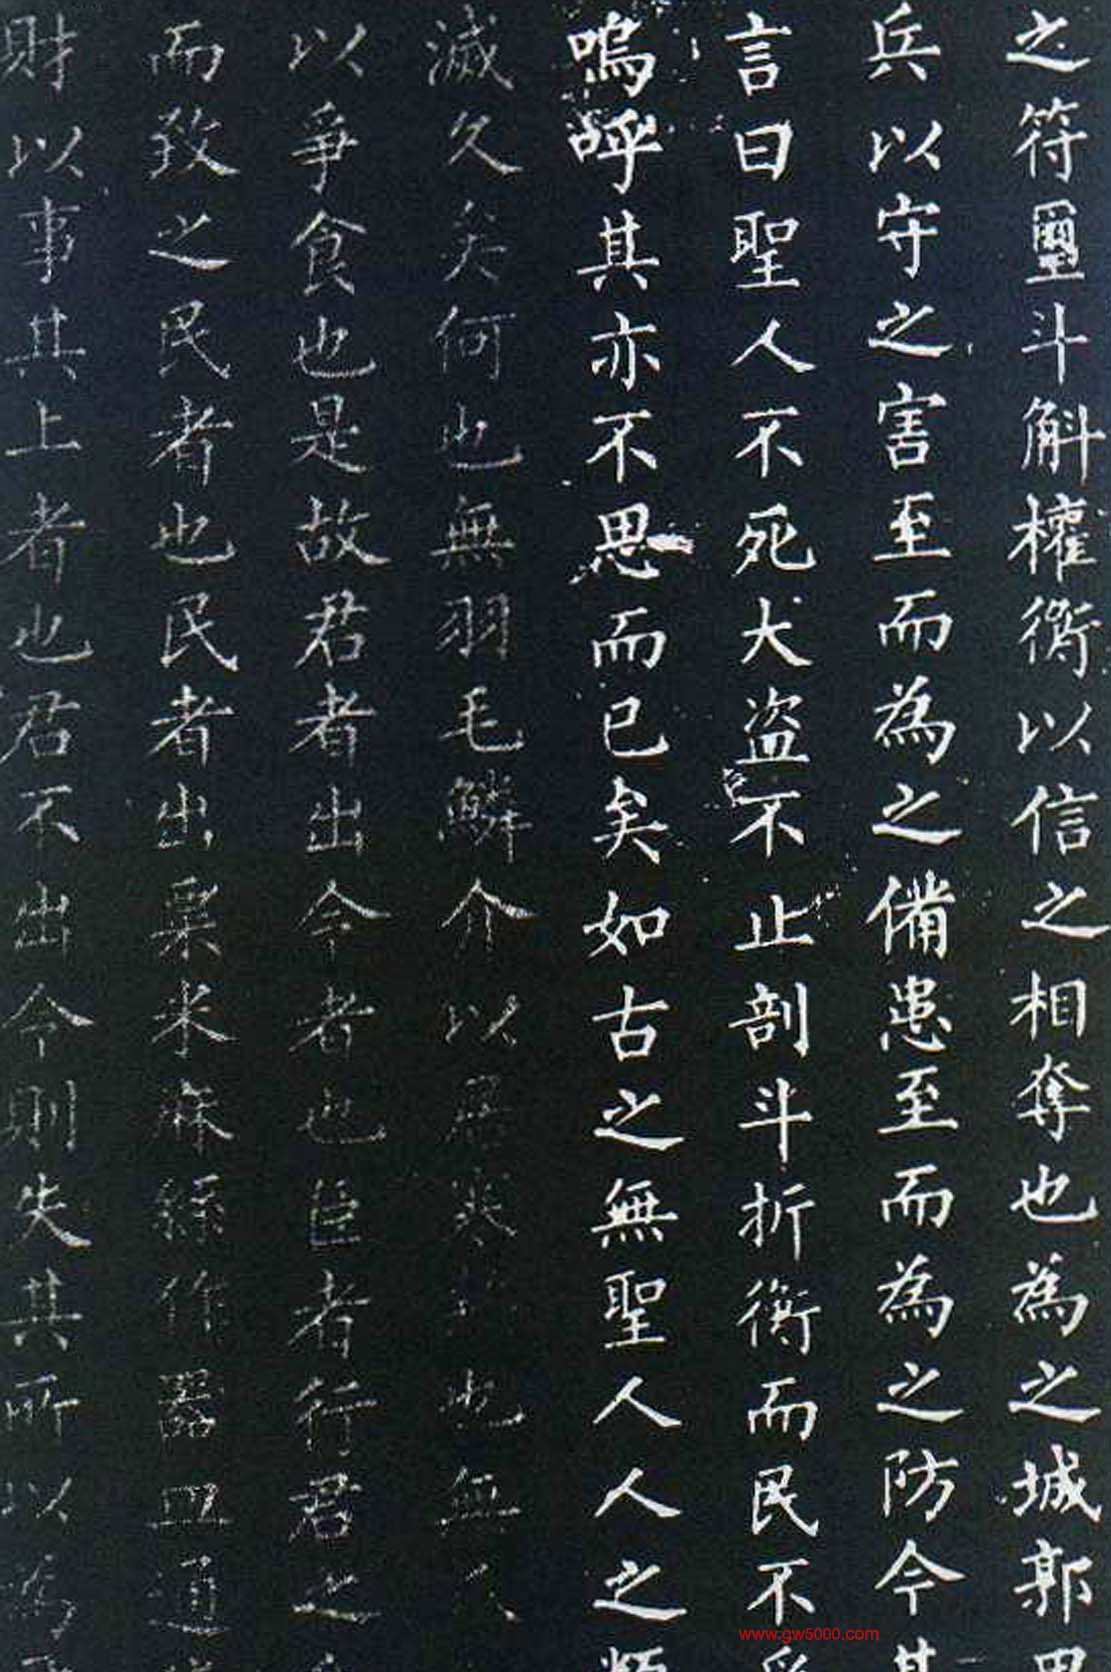 之符璽斗斛權衡以信之相奪也為之城郭
兵以守之害至而為之備患至而為之防今其
言曰聖人不死大盗不止剖斗折衡而民不
嗚呼其亦不思而已矣如古之無聖人人之類
滅久矣何也無羽毛鱗介以居寒熱也無爪
以爭食也是故君者出令者也臣者行君之
而致之民者也民者出粟米麻絲作器皿通
財以事其上者也君不出令則失其所以為
www.gw5000.com